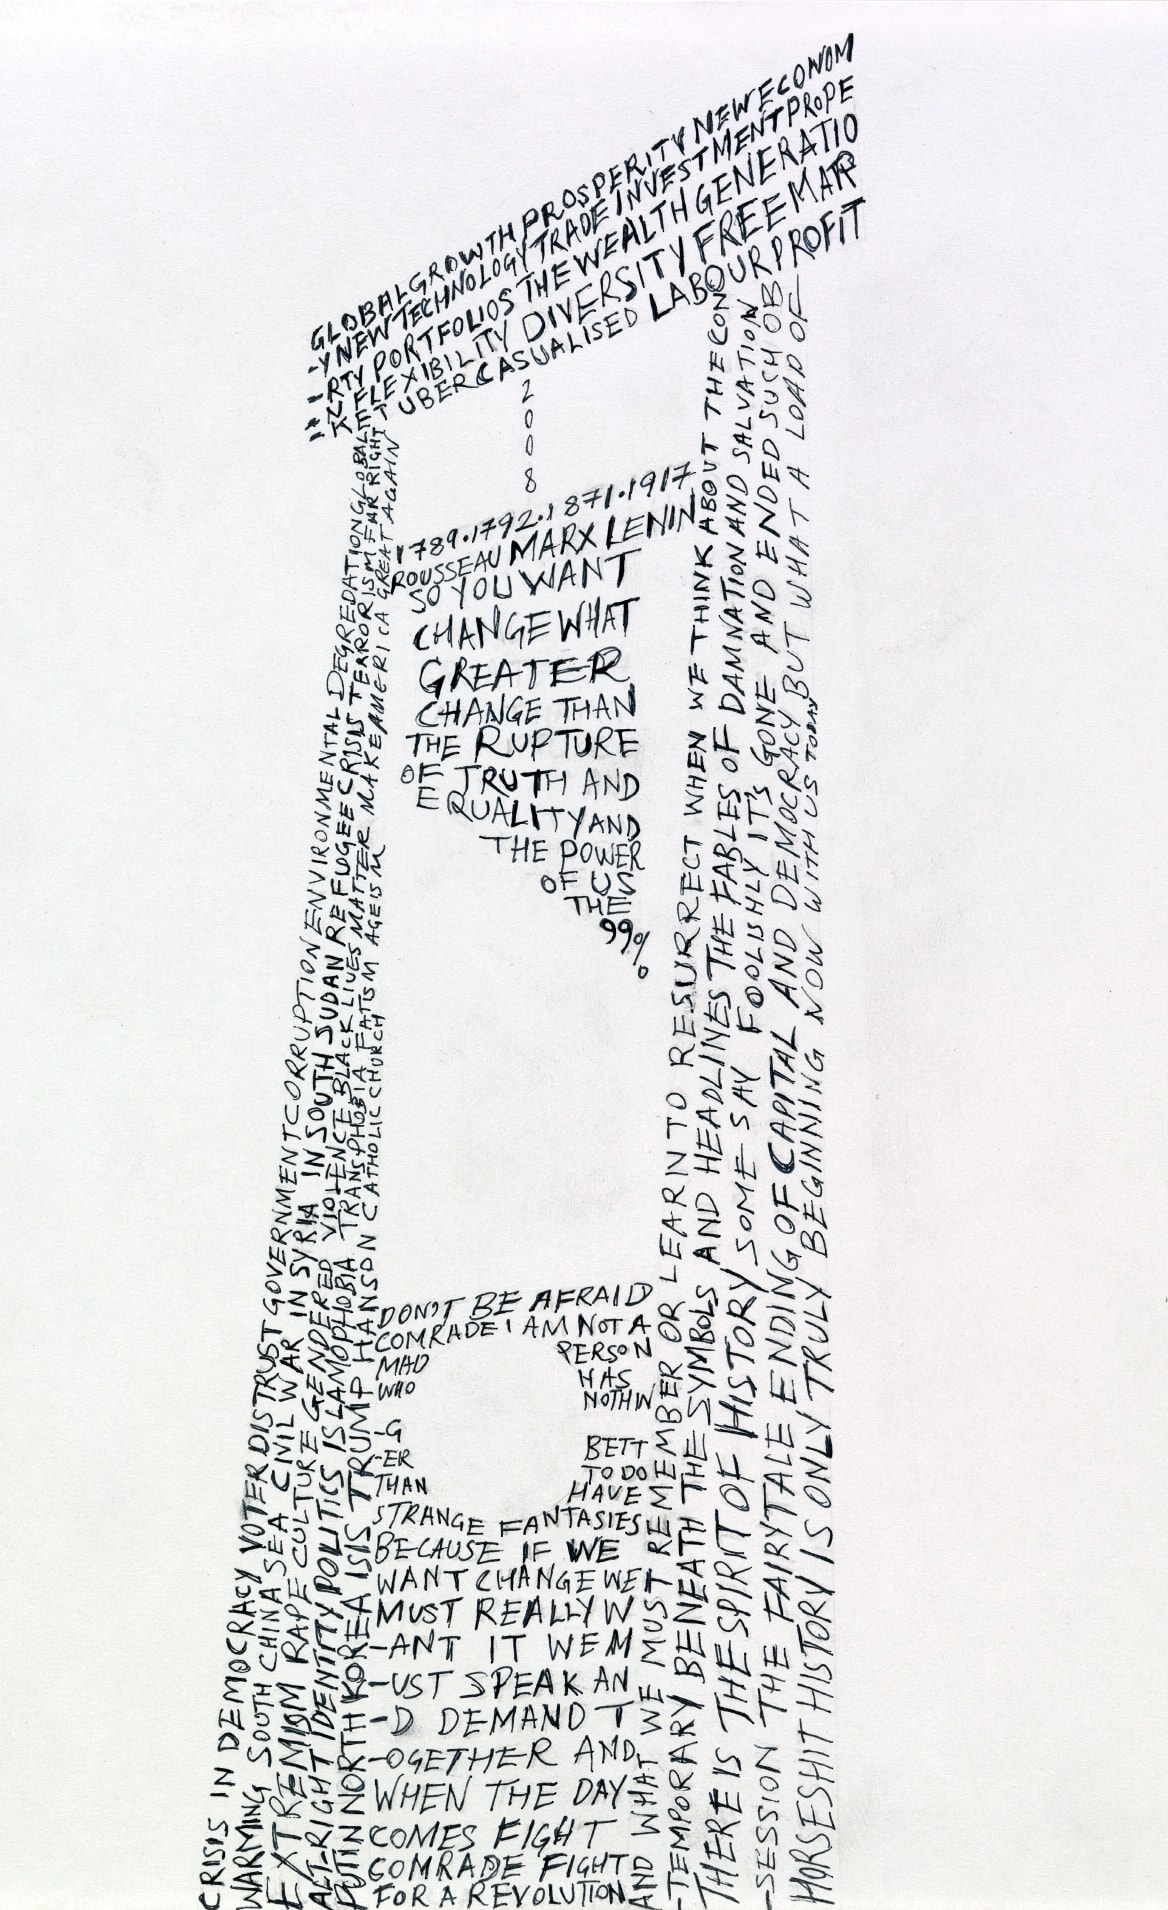 GLOBAL GROWTH PROSPERITY NEW ECONOM
-Y NEW TECHNOLOGY TRADE INVESTMENT PROPE
-RTY PORTFOLIOS THE WEALTH GENERATIO
FLEXIBILITY DIVERSITY FREE MAR
UBER CASUALISED LABOUR PROFIT
2
0
0
8
1789.1792.1871.1917
ROUSSEAU MARX LENIN
SO YOU WANT
CHANGE WHAT
GREATER
CHANGE THAN
THE RUPTURE
OF TRUTH AND
EQUALITY AND
THE POWER
OF US
THE
99%
CRISIS IN DEMOCRACY VOTER DISTRUST GOVERNMENT CORRUPTION ENVIRONMENTAL DEGREDATION GLOBAL
WARMING SOUTH CHINA SEA CIVIL WAR IN SYRIA IN SOUTH SUDAN REFUGEE CRISIS TERRORISM FAR RIGHT
EXTREMISM RAPE CULTURE GENDERED VIOLENCE BLACK LIVES MATTER MAKE AMERICA GREAT AGAIN
ALT RIGHT IDENTITY POLITICS ISLAMOPHOBIA TRANSPHOBIA FATISM AGEISM
PUTIN NORTH KOREA ISIS TRUMP HANSON CATHOLIC CHURCH
DON'T BE AFRAID
COMRADE I AM NOT A
MAD PERSON
WHO HAS
NOTHIN
-G
BETT
-ER TO DO
THAN HAVE
STRANGE FANTASIES
BECAUSE IF WE
WANT CHANGE WE
MUST REALLY W
-ANT IT WE M
-UST SPEAK AN
-D DEMAND T
-OGETHER AND
WHEN THE DAY
COMES FIGHT
COMRADE FIGHT
FOR A REVOLUTION
AND WHAT WE MUST REMEMBER OR LEARN TO RESURRECT WHEN WE THINK ABOUT THE CON
-TEMPORARY BENEATH THE SYMBOLS AND HEADLINES THE FABLES OF DAMNATION AND SALVATION
THERE IS THE SPIRIT OF HISTORY SOME SAY FOOLISHLY IT'S GONE AND ENDED SUCH OB
-SESSION THE FAIRYTALE ENDING OF CAPITAL AND DEMOCRACY BUT WHAT A LOAD OF
HORSESHIT HISTORY IS ONLY TRULY BEGINNING NOW WITH US TODAY